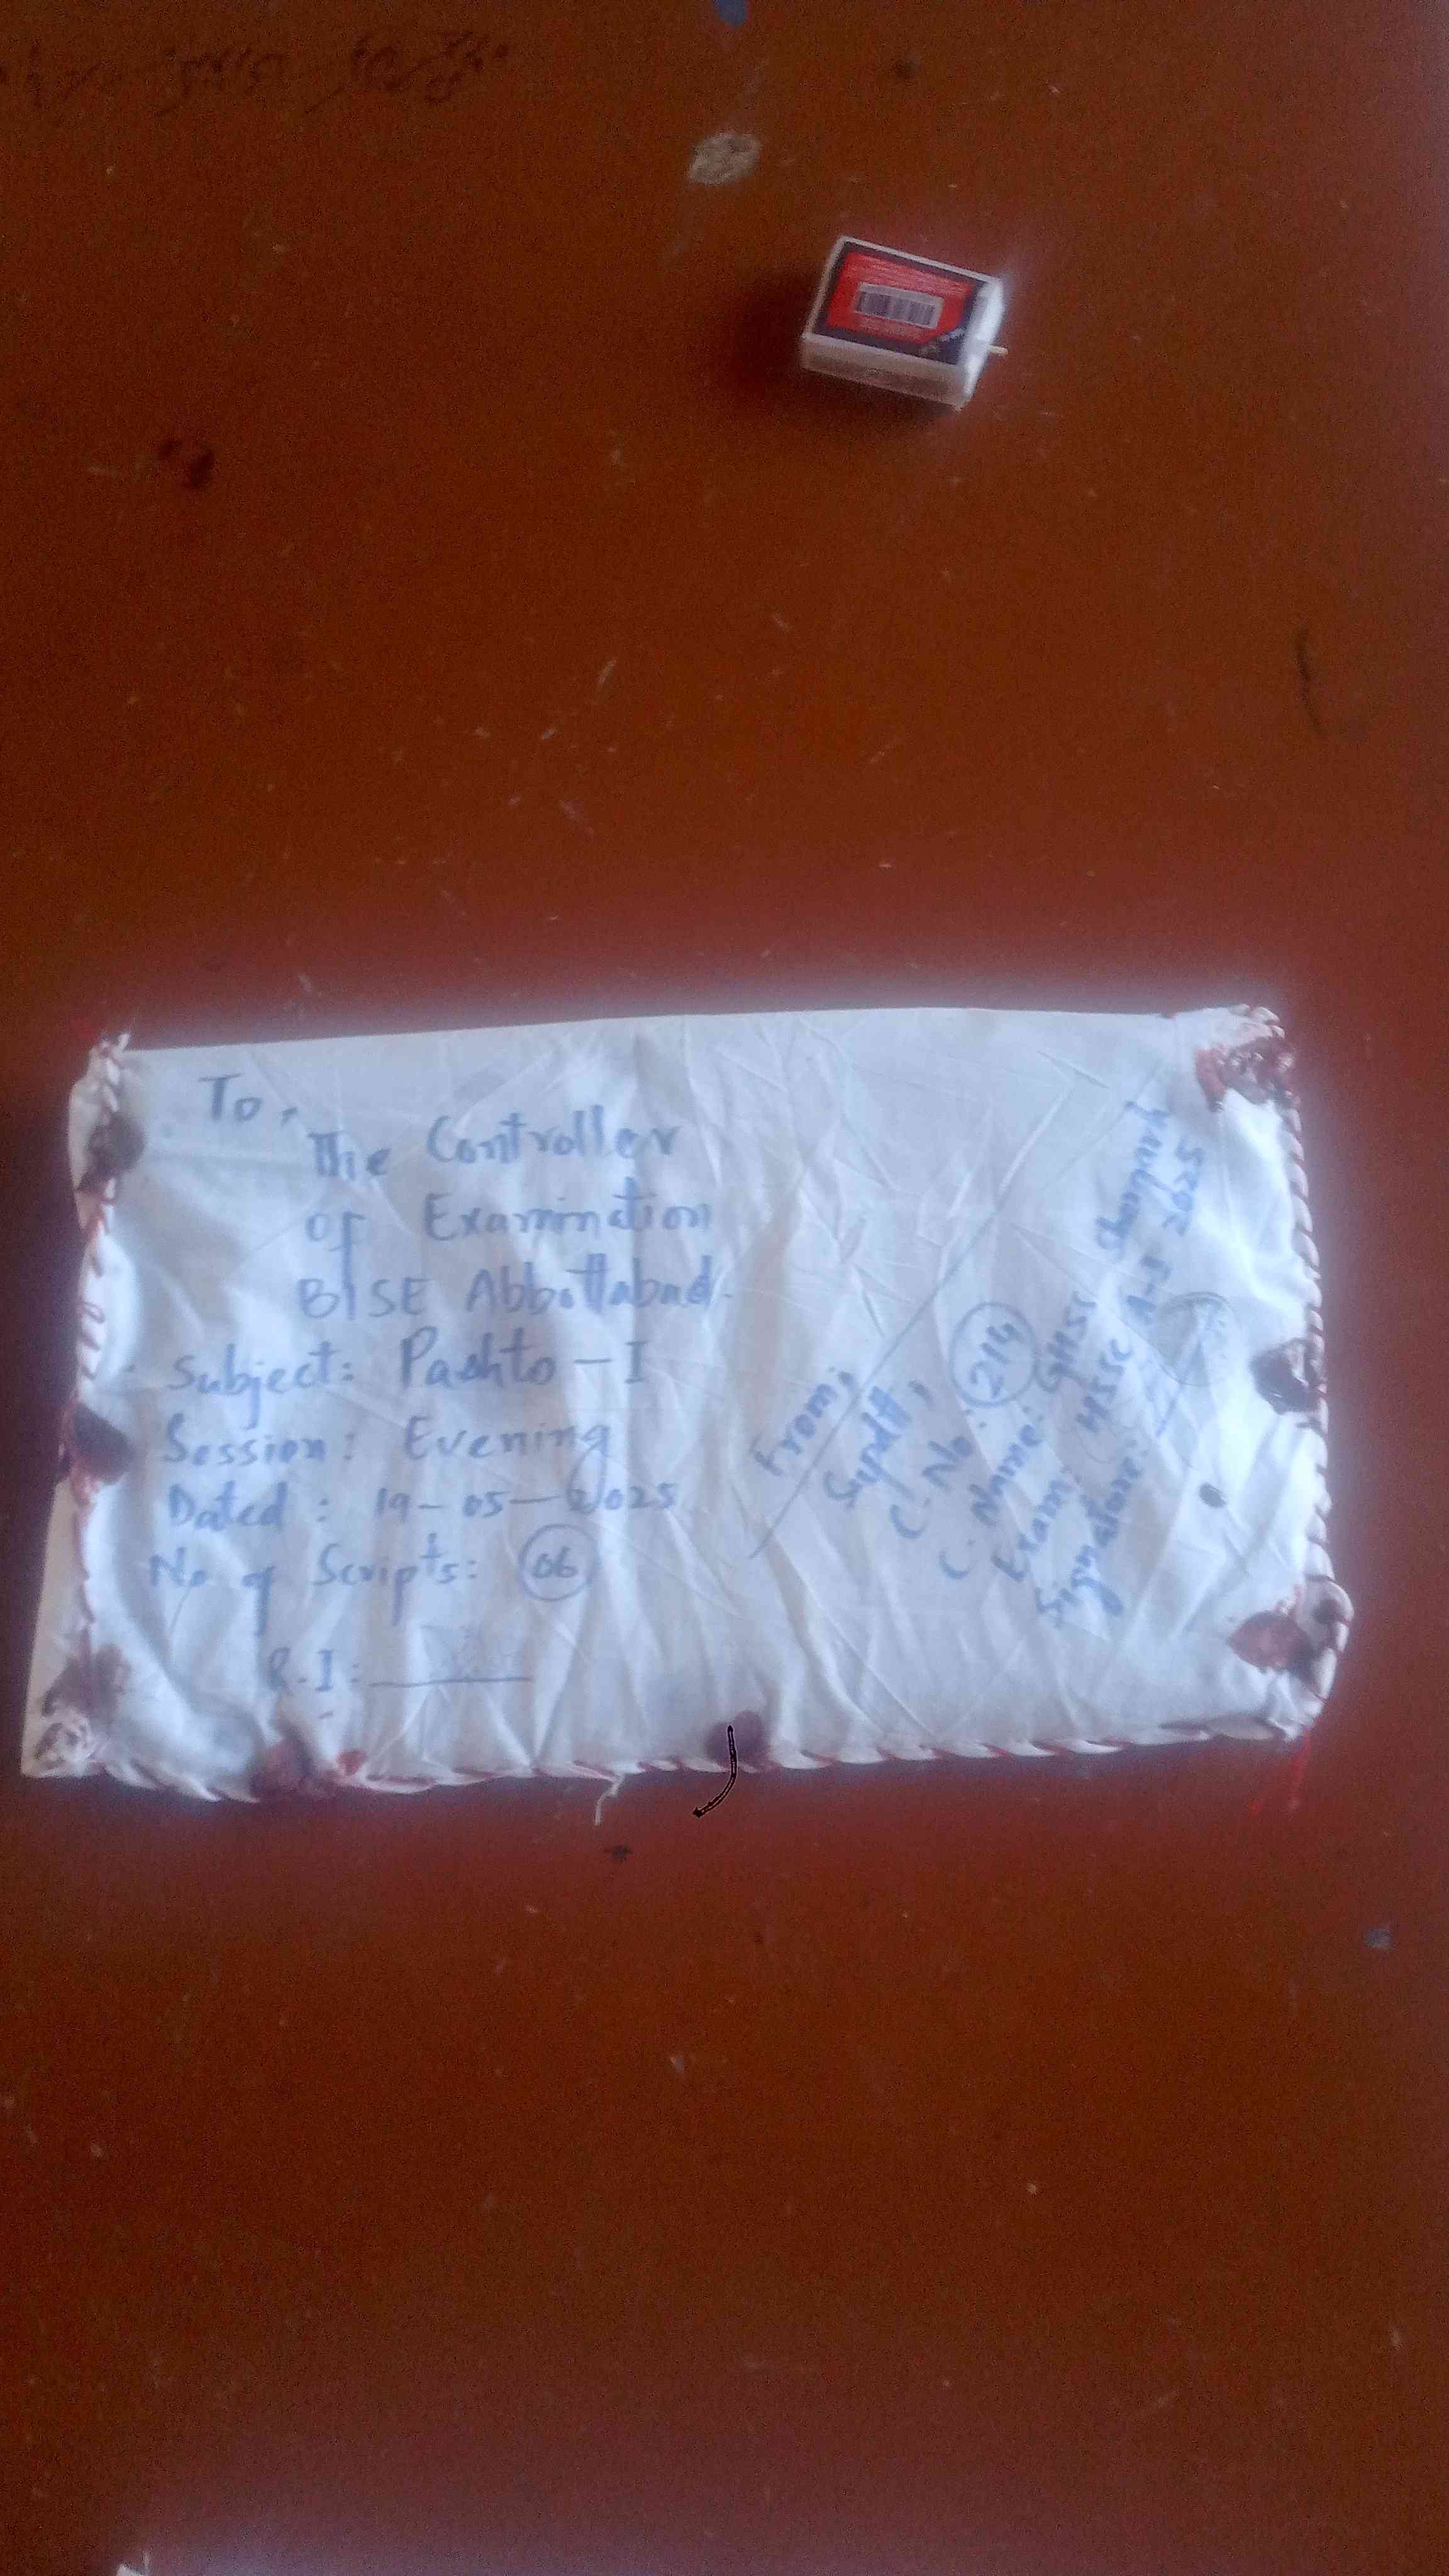 To,
The Controller
of Examination
BISE Abbottabad.
Subject: Pashto-I
Session: Evening
Dated: 19-05-2025
No of Scripts: 06
R.I:
From;
Supdtt,
C. No: 214
C. Name: GHSS
Exam: HSSC A-I 2025
Signature: